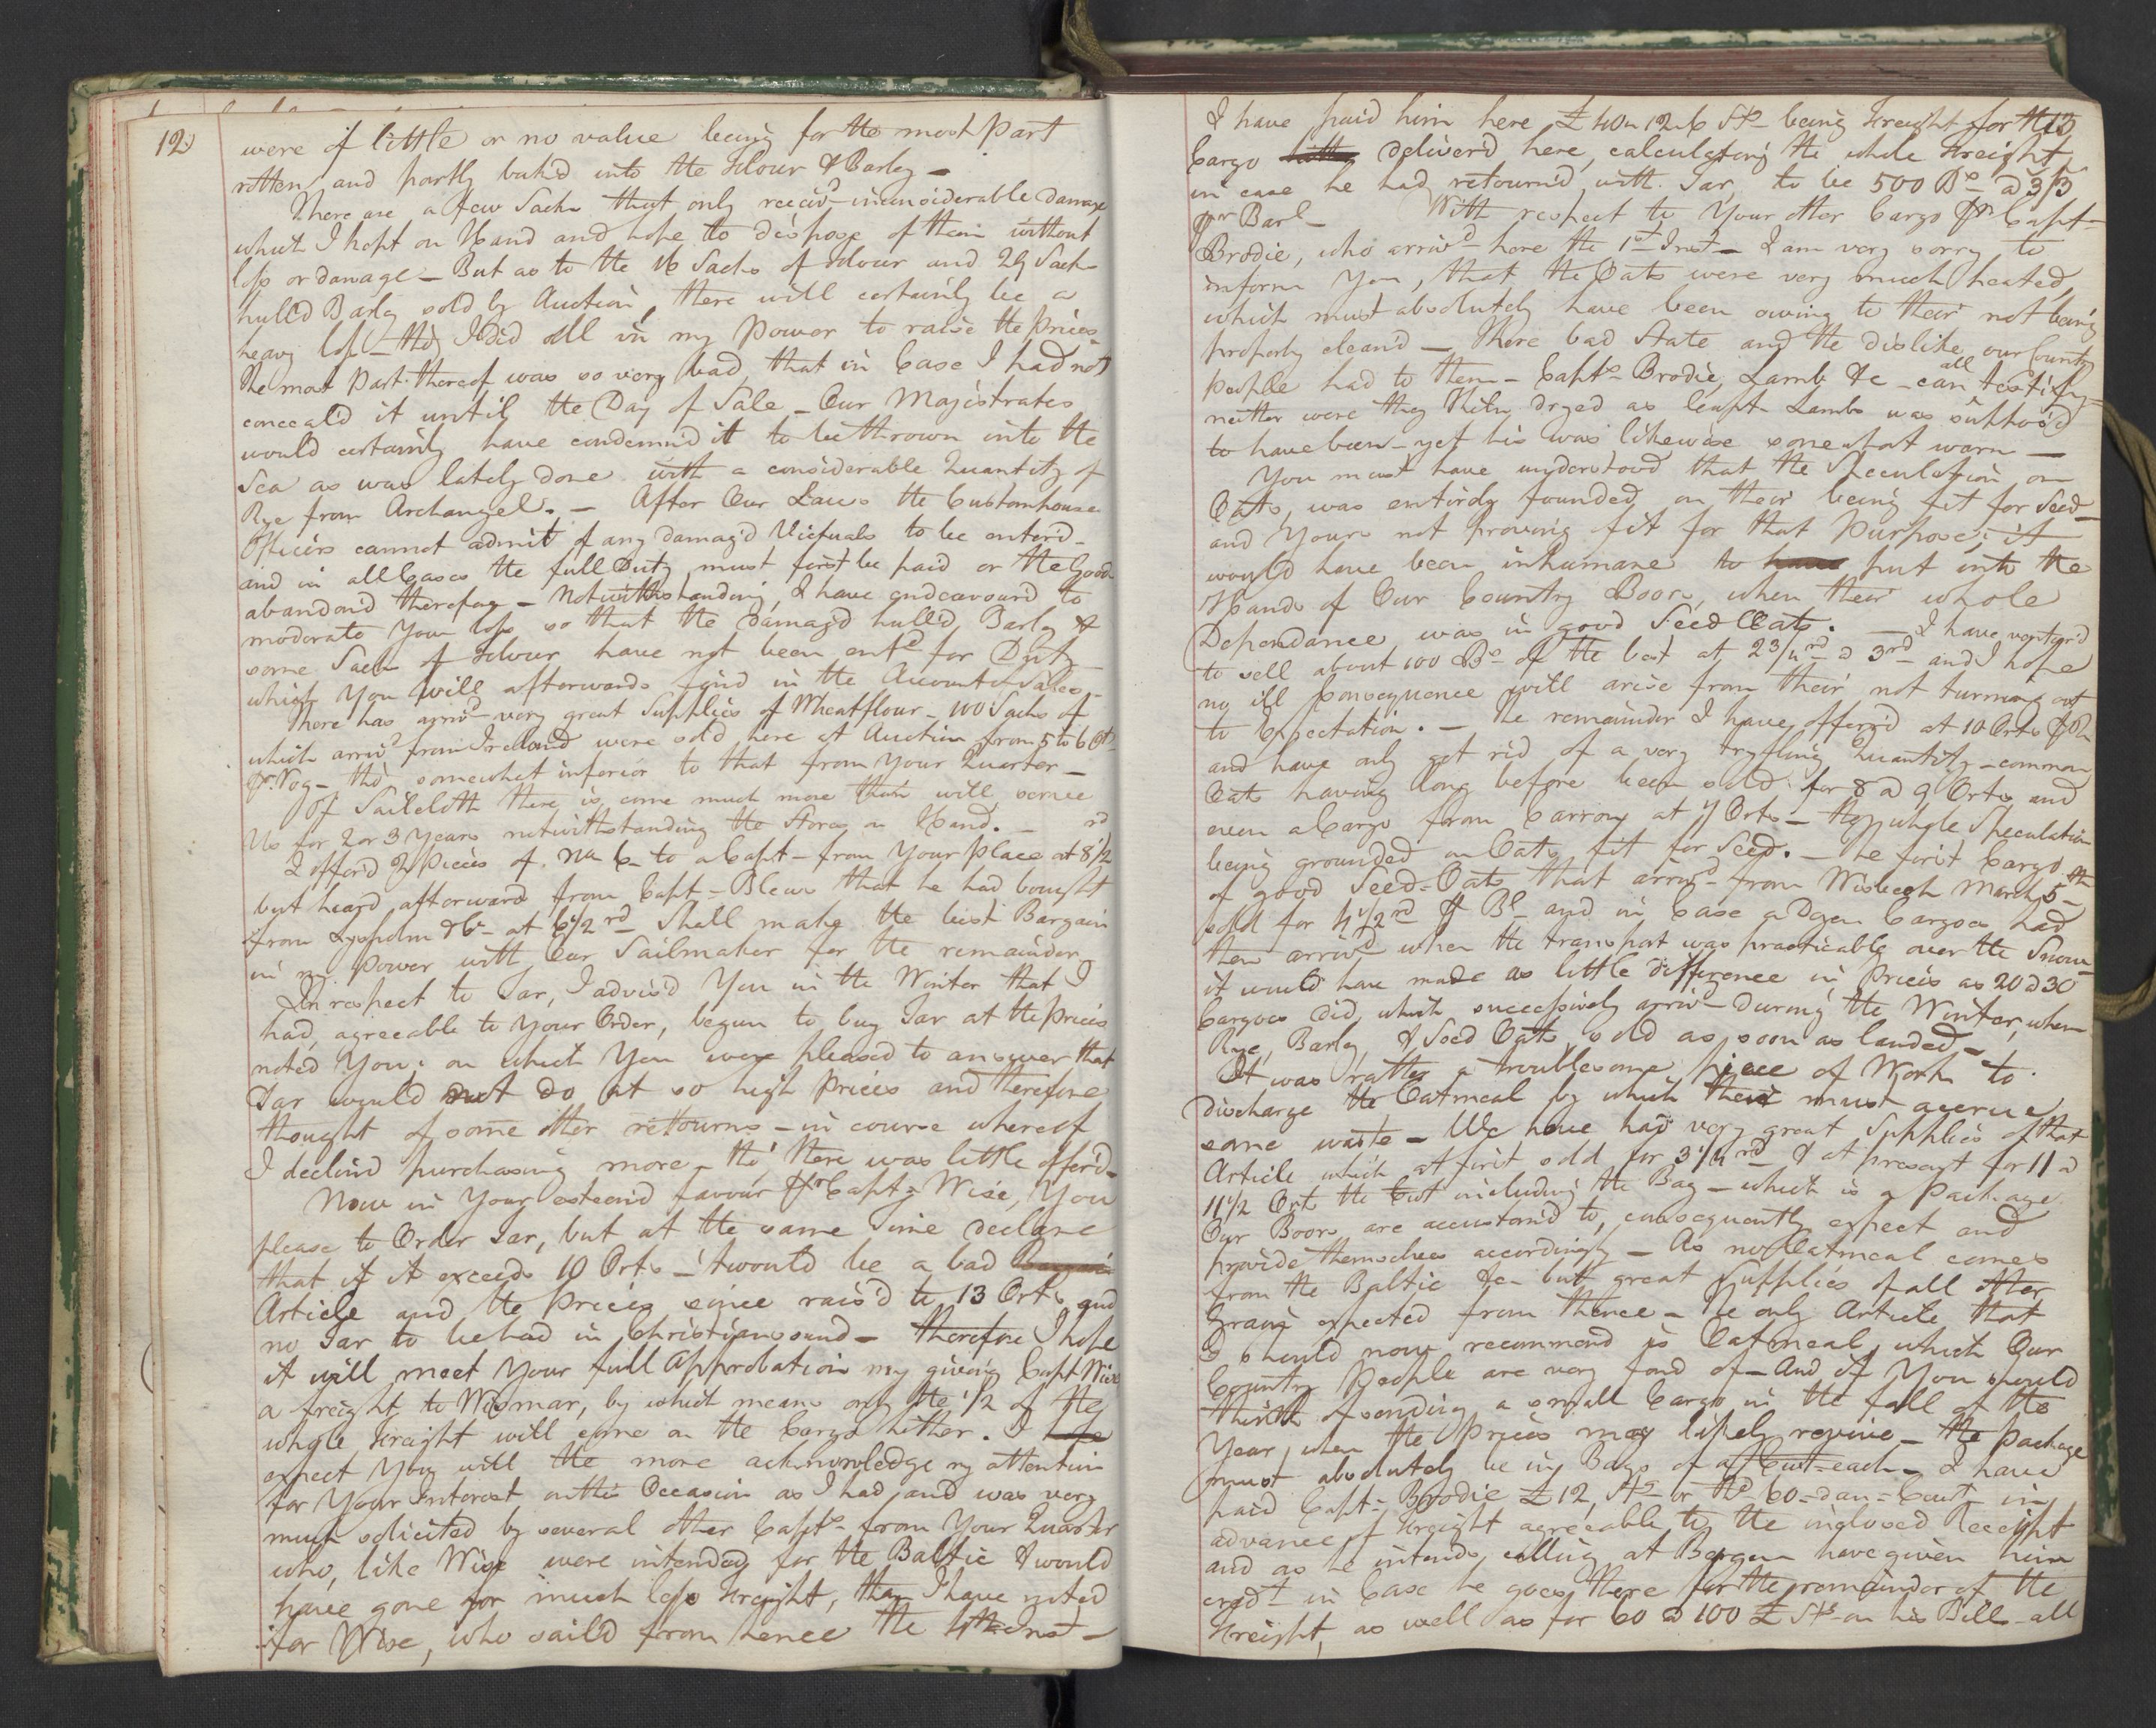 12)
were of little or no value being for the most Part
rotten and partly bak'd into the Flour & Barley –
There are a few Sacks that only receiv'd inconsiderable Damage
which I kept on Hand and hope to dispose of them without
loss or damage – But as to the 16 Sacks of Flour and 29 Sacks
hull'd Barley sold by Auction, there will certainly be a
heavy loss – tho' I did all in my Power to raise the Prices –
The most Part thereof was so very bad, that in Case I had not
conceal'd it until the Day of Sale – Our Majistrates
would certainly have condemn'd it to be thrown into the
Sea as was lately done with a considerable Quantity of
Rye from Archangel. – After Our Laws the Customhouse
Officers cannot admit of any damag'd Victuals to be enter'd –
and in all Cases the full Duty must first be paid or the Goods
abandon'd therefor – Notwithstanding, I have endeavour'd to
moderate Your loss so that the Damag'd hull'd Barley &
some Sacks of Flour have not been entd for Duty –
which You will afterwards find in the Account of Sales –
There has arrivd very great Supplies of Wheatflour – 100 Sacks of
which arrivd from Ireland were sold here at Auction from 5 to 6 Ort
pr Vog – tho' somewhat inferior to that from Your Quarter –
Of Sailcloth there is come much more than will serve
Us for 2 or 3 Years notwithstanding the Stores on Hand. –
I offer'd 2 Pieces of No 6 – to a Capt – from Your Place at 8 1/2 rd
but heard afterward from Capt – Blews that he had bought
from Lysholm & Co – at 6 1/2 rd Shall make the best Bargain
in my Power with Our Sailmaker for the remainder,
In respect to Tar, I advis'd You in the Winter that I
had, agreeable to Your Order, begun to buy Tar at the Prices
noted You; on which You were pleased to answer that
Tar would not do at so high Prices and therefore
thought of some other retourns – in course whereof
I declin'd purchasing more – tho' there was little offer'd –
Now in Your esteem'd favour pr Capt – Wise, You
please to Order Tar, but at the same Time declare
that if it exceeds 10 Orts – 'twould be a bad Bargain
Article and the Prices since rais'd to 13 Orts and
no Tar to be had in Christiansund – therefore I hope
it will meet Your full Approbation my giving Capt Wise
a freight to Wismar, by which means only the 1/2 of the
whole Freight will come on the Cargo hither. I hope
expect You will the more acknowledge my attention
for Your Interest on this Occasion as I had, and was very
much solicited by several other Capts – from Your Quarter
who, like Wise were intended for the Baltic & would
have gone for much less Freight, than I have noted
for Wise, who sail'd from hence the 4th Inst –
I have paid him here £ 40 „ 12 „ 6 Stg – being Freight for the
13
Cargo hither deliver'd here, calculating the whole Freight
in case he had retourn'd with Tar, to be 500 Bs – a 3/3
pr Barl – With respect to Your other Cargo pr Capt –
Brodie, who arrivd here the 1st Inst – I am very sorry to
inform You, that the Oats were very much heated,
which must absolutely have been owing to their not being
properly clean'd – There bad State and the dislike our Country
People had to them – Capts – Brodie, Lamb &c – can all testify –
neither were they Kiln dryed as least Lambs was suppos'd
to have been – yet his was likewise somewhat warm –
You must have understood that the Speculation on
Oats, was entirely founded, on their being fit for Seed –
and Yours not proving fit for that Purpose; it
would have been inhumane to have put into the
Hands of Our Country Boors, when their whole
Dependance was in good Seed Oats. – I have ventur'd
to sell about 100 Bs of the best at 2 3/4 rd a 3 rd – and I hope
no ill Consequence will arise from their not turning out
to Expectation. – The remainder I have offer'd at 10 Orts pr Bl
and have only got rid of a very tryfling Quantity – common
Oats having long before been sold for 8 a 9 Orts and
even a Cargo from Carron at 7 Orts – the whole Speculation
being grounded on Oats fit for Seed. – The first Cargo
of good Seed-Oats that arrivd from Wisbech March 5th –
sold for 4 1/2 rd pr Bl – and in Case a Dozen Cargoes had
then arrivd when the transport was practicable over the Snow –
it would have made as little difference in Prices as 20 a 30
Cargoes did, which successively arrivd During the Winter, when
Rye, Barley, & Seed Oats sold as soon as landed –
It was rather a troublesome piece of Work to
Discharge the Oatmeal by which their must accrue
some waste – We have had very great Supplies of that
Article which at first sold for 3 1/4 rd – & at present for 11 a
11 1/2 Orts the Cwt including the Bag – which is a Package
Our Boors are accustom'd to, consequently expect and
provide themselves accordingly – As no Oatmeal comes
from the Baltic &c – but great Supplies of all other
Grain expected from thence – The only Article that
I should now recommend is Oatmeal, which Our
Country People are very fond of – And if You should
think of sending a small Cargo in the fall of the
Year, when the Prices may likely revive – the Package
must absolutely be in Bags of a Cwt – each – I have
paid Capt – Brodie £ 12, Stg – or Rd 60 – Dan = Court in
advance of Freight agreeable to the inclosed Receipt
and as he intends calling at Bergen have given him
credt in Case he goes there for the remainder of the
Freight, as well as for 60 a 100 £ Stg – on his Bill – all